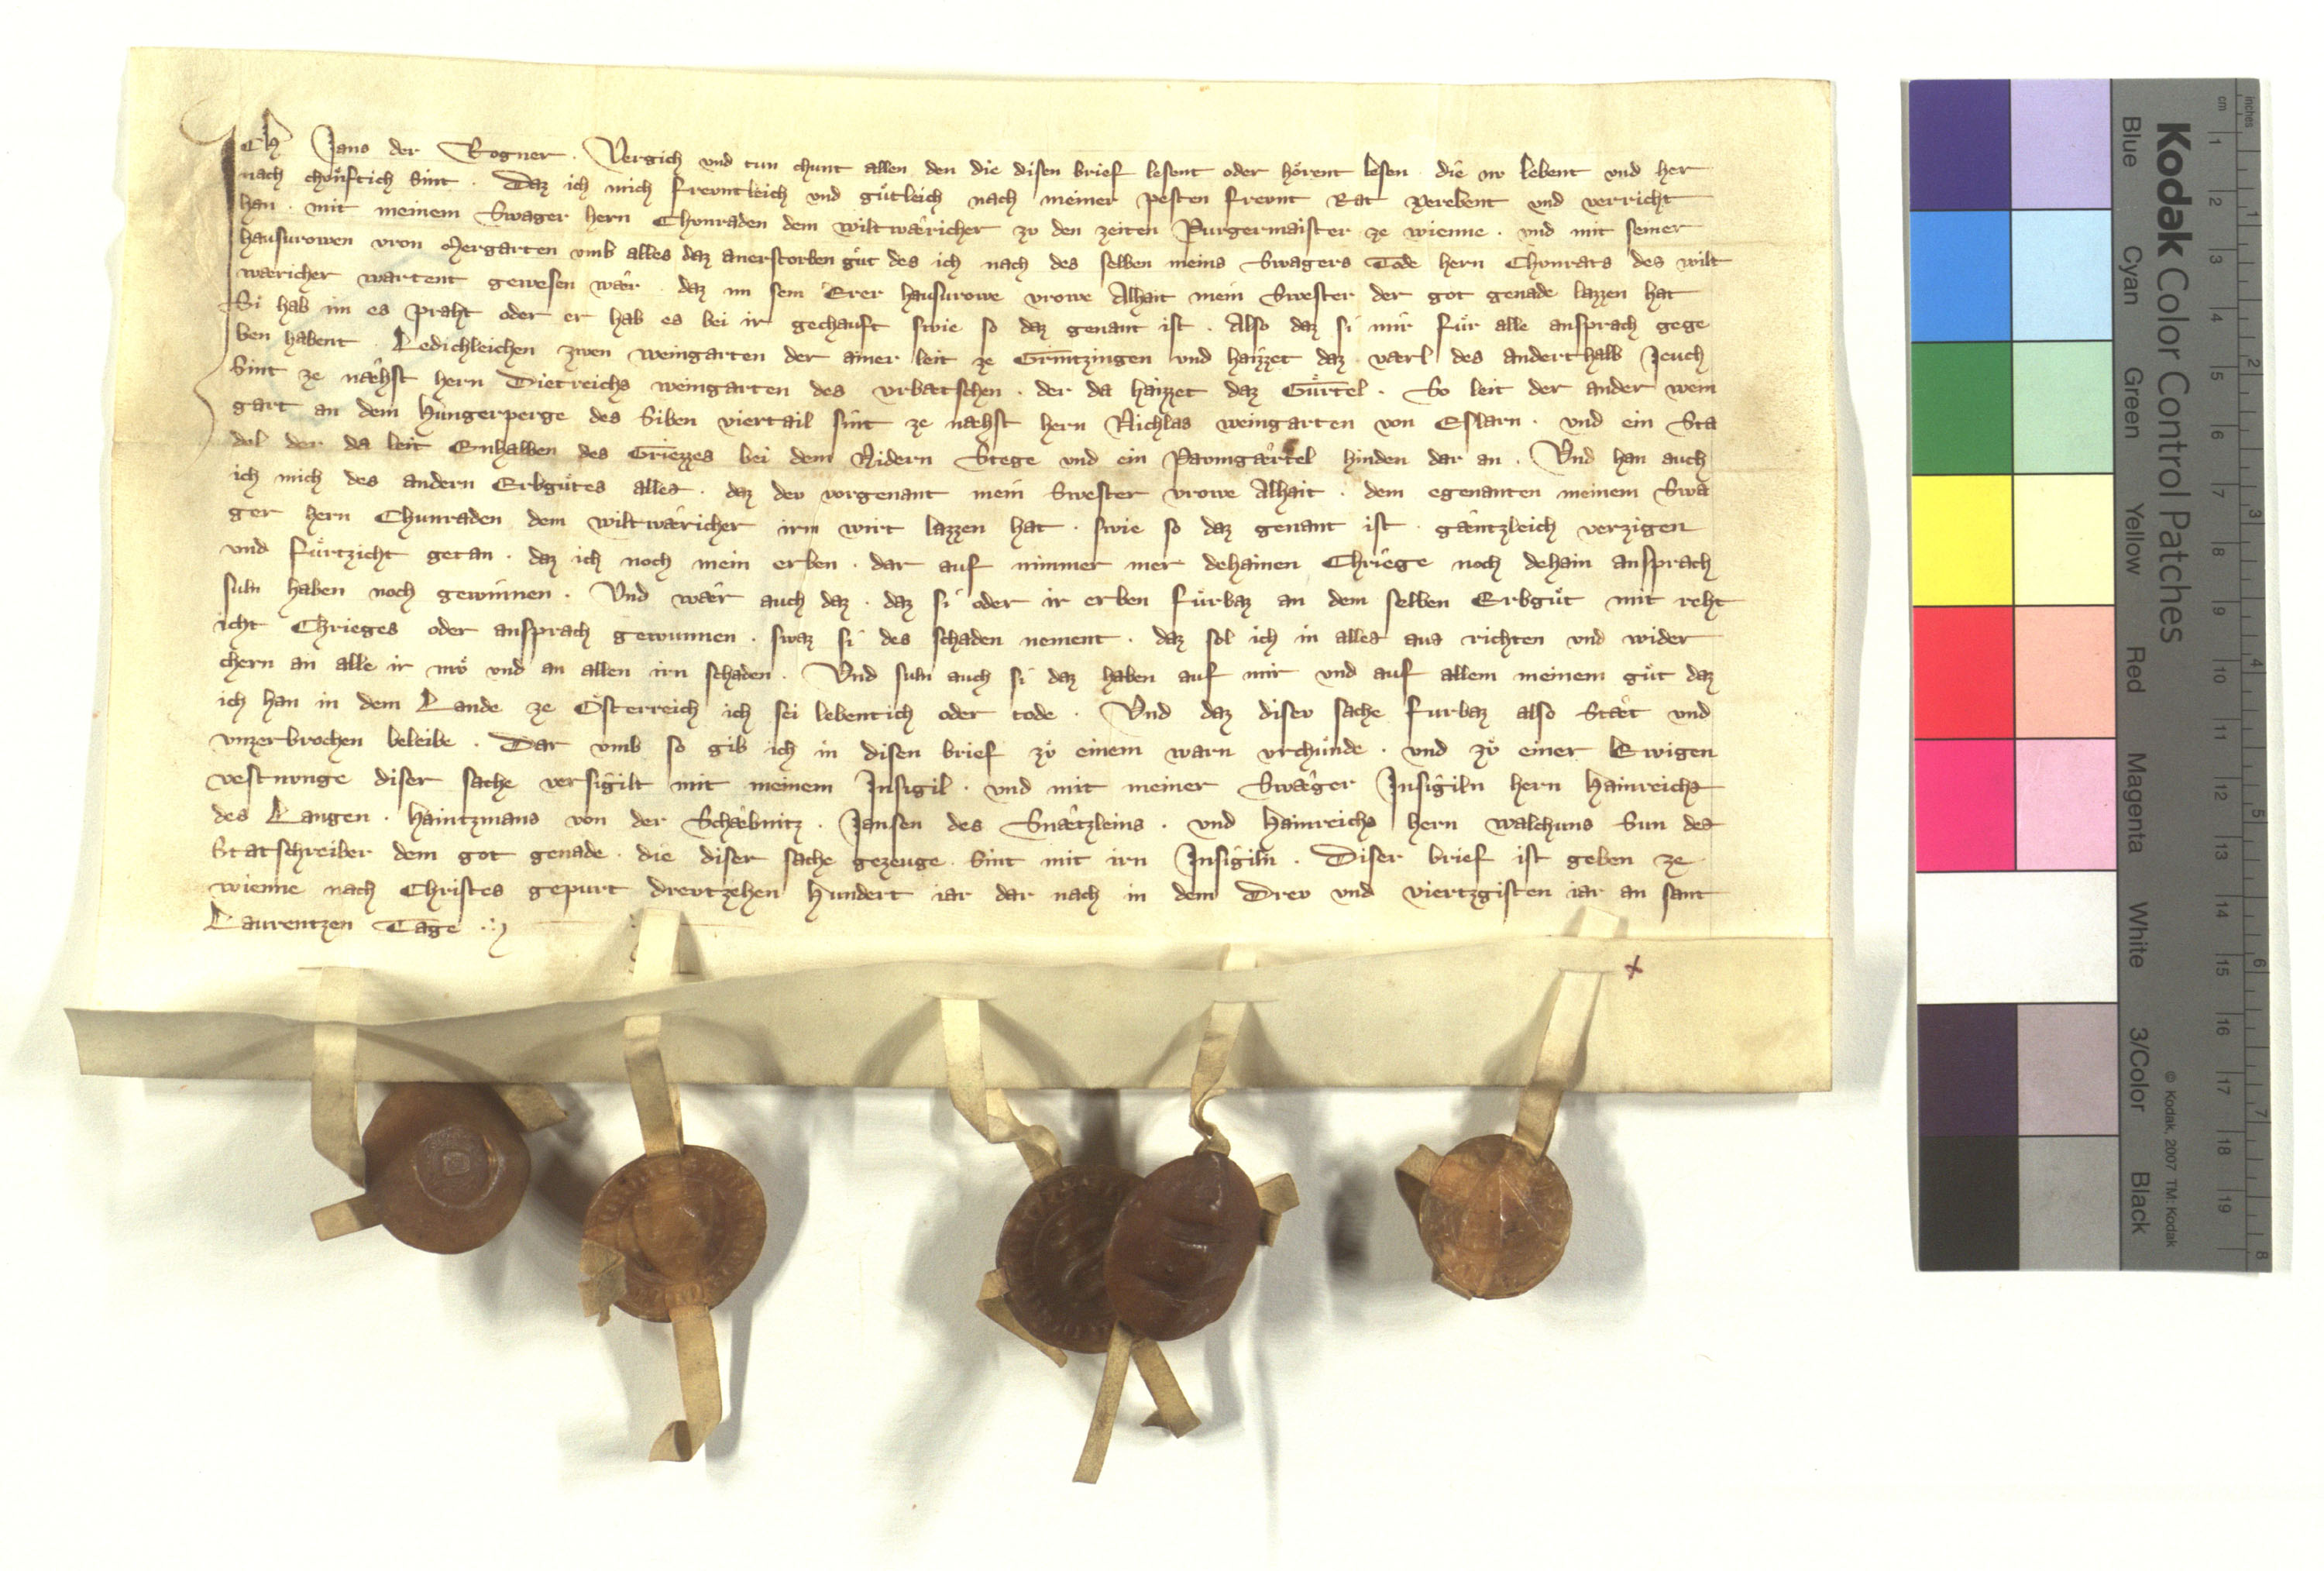 Ich Jans der Rogner . Vergich vnd tun chunt allen den die disen brief lesent oder hoͤrent lesen die nv lebent vnd her
nach choͮnftich sint . Daz ich mich frevntleich vnd guͤtleich nach meiner pesten frevnt Rat verebent vnd verricht
han . mit meinem Swager hern Chvnraden dem wiltwæricher zv den zeiten Purgermaister ze wienne . vnd mit seiner
hausvrowen vron Mergarten vmb alles daz anerstorben guͤt des ich nach des selben meins Swagers Tode hern Chvnrats des wilt
wæricher wartent gewesen wær . daz im sein Erer hausvrowe vrowe Alhait mein Swester der got genade lazzen hat
Si hab im es praht oder er hab es bei ir gechauft swie so daz genant ist . Also daz si mir fuͤr alle ansprach gege
ben habent . Ledichleichen zwen weingarten der ainer leit ze Grintzingen vnd haizzet daz værl des anderthalb Jeuch
Sint ze næhst hern Dietreichs weingarten des vrbætschen . der da haizzet daz Guͤrtel . So leit der ander wein
gart an dem Hungerperge des Siben viertail sint ze næhst hern Nichlas weingarten von Eslarn . vnd ein Sta
del der da leit Enhalben des Griezzes bei dem Nidern Stege vnd ein Paumgærtel hinden dar an . Vnd han auch
ich mich des andern Erbguͤtes alles . daz dev vorgenant mein Swester vrowe Alhait . dem egenanten meinem Swa
ger hern Chunraden dem wiltwæricher irm wirt lazzen hat . swie so daz genant ist . gæntzleich verzigen
vnd fuͤrtzicht getan . daz ich noch mein erben . dar auf nimmer mer dehainen Chriege noch dehain ansprach
suln haben noch gewinnen . Vnd wær auch daz . daz si oder ir erben fuͤrbaz an dem selben Erbguͤt mit reht
icht Chrieges oder ansprach gewunnen . swaz si des schaden nement . daz sol ich in alles aus richten vnd wider
chern an alle ir muͤ vnd an allen irn schaden . Vnd suln auch si daz haben auf mir vnd auf allem meinem guͤt daz
ich han in dem Lande ze Oͤsterreich ich sei lebentich oder tode . Vnd daz disev sache furbaz also Stæt vnd
vnzerbrochen beleibe . Dar vmb so gib ich in disen brief zuͤ einem warn vrchuͤnde . vnd zuͤ einer Ewigen
vestnunge diser sache versigilt mit meinem Insigil . vnd mit meiner Swæger Insigiln hern Hainreichs
des Langen . Haintzmans von der Schæbnitz . Jansen des Snætzleins . vnd Hainreichs hern walchuns Sun des
Statschreiber dem got genade . die diser sache gezeuge sint mit irn Insigiln . Diser brief ist geben ze
wienne nach Christes gepurt drevtzehen Hundert iar dar nach in dem Drev vnd viertzgisten iar an sant
Laurentzen Tage .
Kodak Color Control Patches
Blue Cyan Green Yellow Red Magenta White 3/Color Black
© Kodak, 2007 TM: Kodak
cm 1 2 3 4 5 6 7 8 9 10 11 12 13 14 15 16 17 18 19
inches 1 2 3 4 5 6 7 8